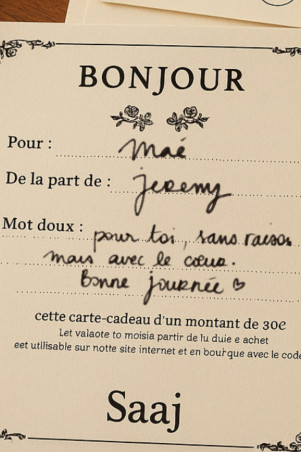 BONJOUR
Pour : Maé
De la part de : jeremy
Mot doux : pour toi, sans raison
mais avec le cœur.
Bonne journée ♡
cette carte-cadeau d'un montant de 30€
Let valaote to moisia partir de lu duie e achet
eet utilisable sur notte site internet et en bourque avec le code
Saaj